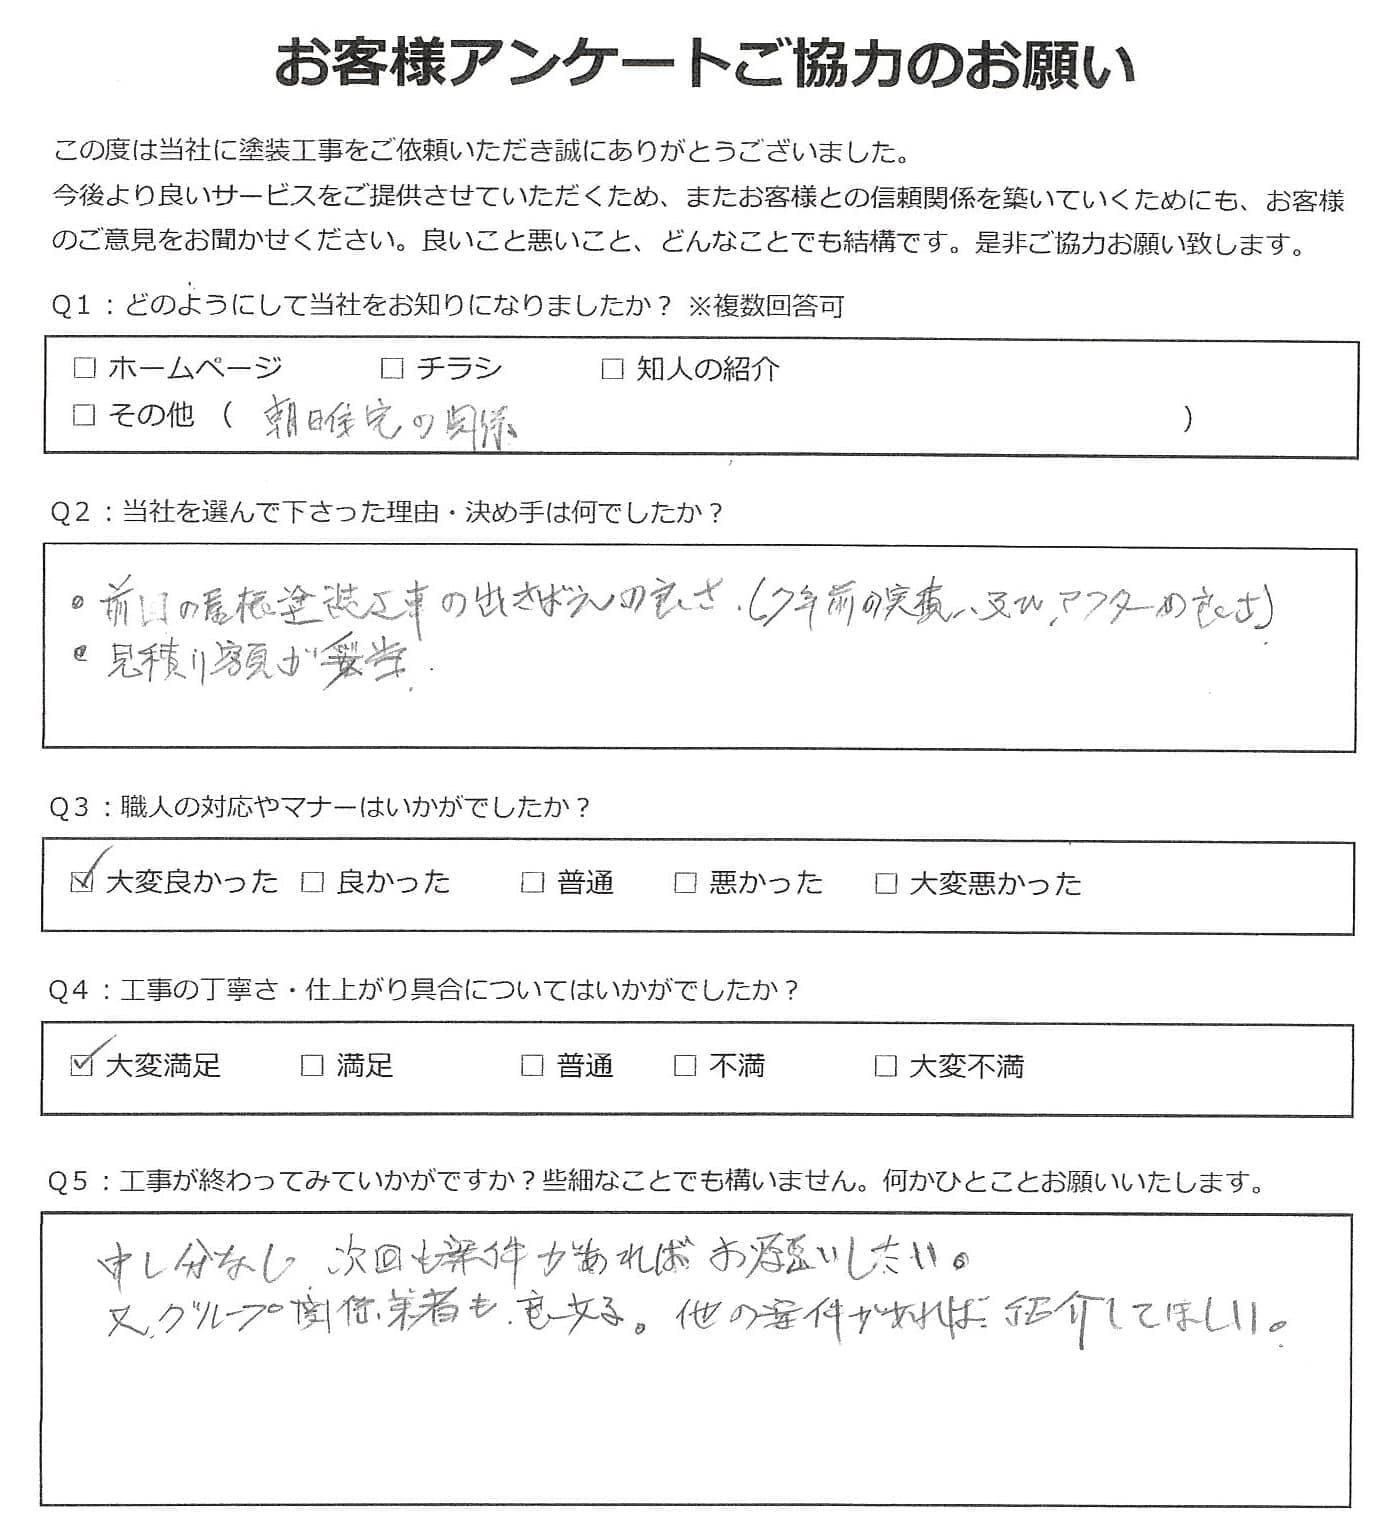 お客様アンケートご協力のお願い
この度は当社に塗装工事をご依頼いただき誠にありがとうございました。
今後より良いサービスをご提供させていただくため、またお客様との信頼関係を築いていくためにも、お客様
のご意見をお聞かせください。良いこと悪いこと、どんなことでも結構です。是非ご協力お願い致します。
Q1：どのようにして当社をお知りになりましたか？ ※複数回答可
□ ホームページ □ チラシ □ 知人の紹介
□ その他 （ 朝日住宅の関係 ）
Q2：当社を選んで下さった理由・決め手は何でしたか？
• 前回の屋根塗装工事の出きばえの良さ.(7年前の実績、及び アフターの良さ)
• 見積り額が妥当.
Q3：職人の対応やマナーはいかがでしたか？
☑ 大変良かった □ 良かった □ 普通 □ 悪かった □ 大変悪かった
Q4：工事の丁寧さ・仕上がり具合についてはいかがでしたか？
☑ 大変満足 □ 満足 □ 普通 □ 不満 □ 大変不満
Q5：工事が終わってみていかがですか？些細なことでも構いません。何かひとことお願いいたします。
申し分なし 次回も案件があればお願いしたい。
又、グループ関係業者も 。他の案件があれば紹介してほしい。